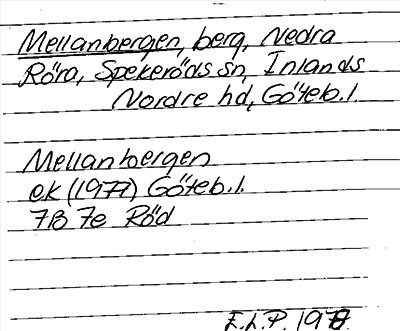 Mellanbergen, berg, Nedra
Röra, Spekeröds sn, Inlands
Nordre hd, Göteb.l.
Mellanbergen
ek (1977) Göteb.l.
7B 7e Röd
E.L.P.